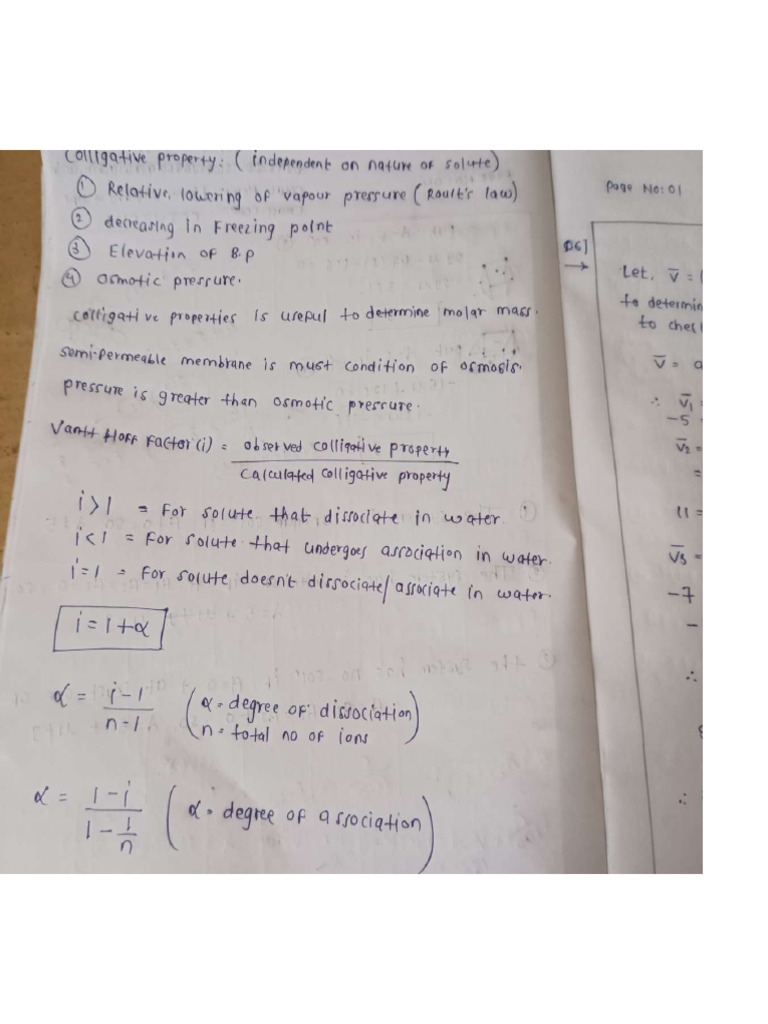 Colligative property: ( independent on nature of solute)
① Relative lowering of vapour pressure ( Roult's law)
② decreasing in Freezing point
③ Elevation of B.p
④ Osmotic pressure.
Colligative properties is useful to determine molar mass.
Semi-permeable membrane is must condition of osmosis.
pressure is greater than osmotic pressure.
Vantt Hoff Factor (i) = observed colligative property
Calculated colligative property
i > 1 = For solute that dissociate in water.
i < 1 = For solute that undergoes association in water.
i = 1 = For solute doesn't dissociate/associate in water.
i = 1 + α
α = i - 1 / n - 1 ( α = degree of dissociation)
n = total no of ions
α = 1 - i / 1 - 1/n ( α = degree of association)
Page No: 01
Q6]
→
Let, v̄ = (
to determin
to chec
v̄ = a
∴ v̄1 =
-5 =
v̄2 =
=
11 =
v̄3 =
-7
-
∴
∴